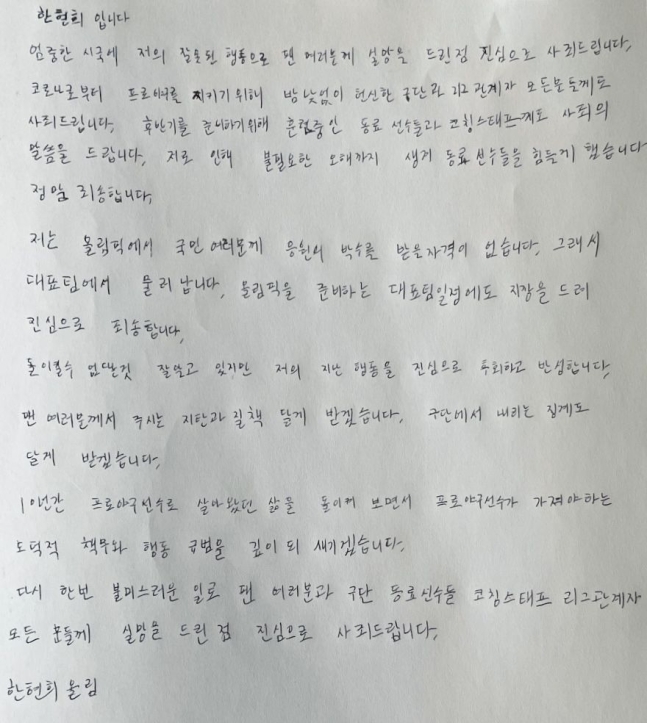 한현희 입니다
엄중한 시국에 저의 잘못된 행동으로 팬 여러분께 실망을 드린점 진심으로 사죄드립니다.
코로나로부터 프로야구를 지키기 위해 밤낮없이 헌신한 구단과 리그 관계자 모든분들께도
사죄드립니다. 후반기를 준비하기위해 훈련중인 동료 선수들과 코칭스태프께도 사죄의
말씀을 드립니다. 저로 인해 불필요한 오해까지 생겨 동료 선수들을 힘들게 했습니다
정말 죄송합니다.
저는 올림픽에서 국민 여러분께 응원의 박수를 받을자격이 없습니다. 그래서
대표팀에서 물러납니다. 올림픽을 준비하는 대표팀일정에도 지장을 드려
진심으로 죄송합니다.
돌이킬수 없다는것 잘알고 있지만 저의 지난 행동을 진심으로 후회하고 반성합니다.
팬 여러분께서 주시는 지탄과 질책 달게 받겠습니다. 구단에서 내리는 징계도
달게 받겠습니다.
10년간 프로야구선수로 살아왔던 삶을 돌이켜 보면서 프로야구선수가 가져야하는
도덕적 책무와 행동 규범을 깊이 되 새기겠습니다.
다시 한번 불미스러운 일로 팬 여러분과 구단 동료선수들 코칭스태프 리그관계자
모든 분들께 실망을 드린 점 진심으로 사죄드립니다.
한현희 올림